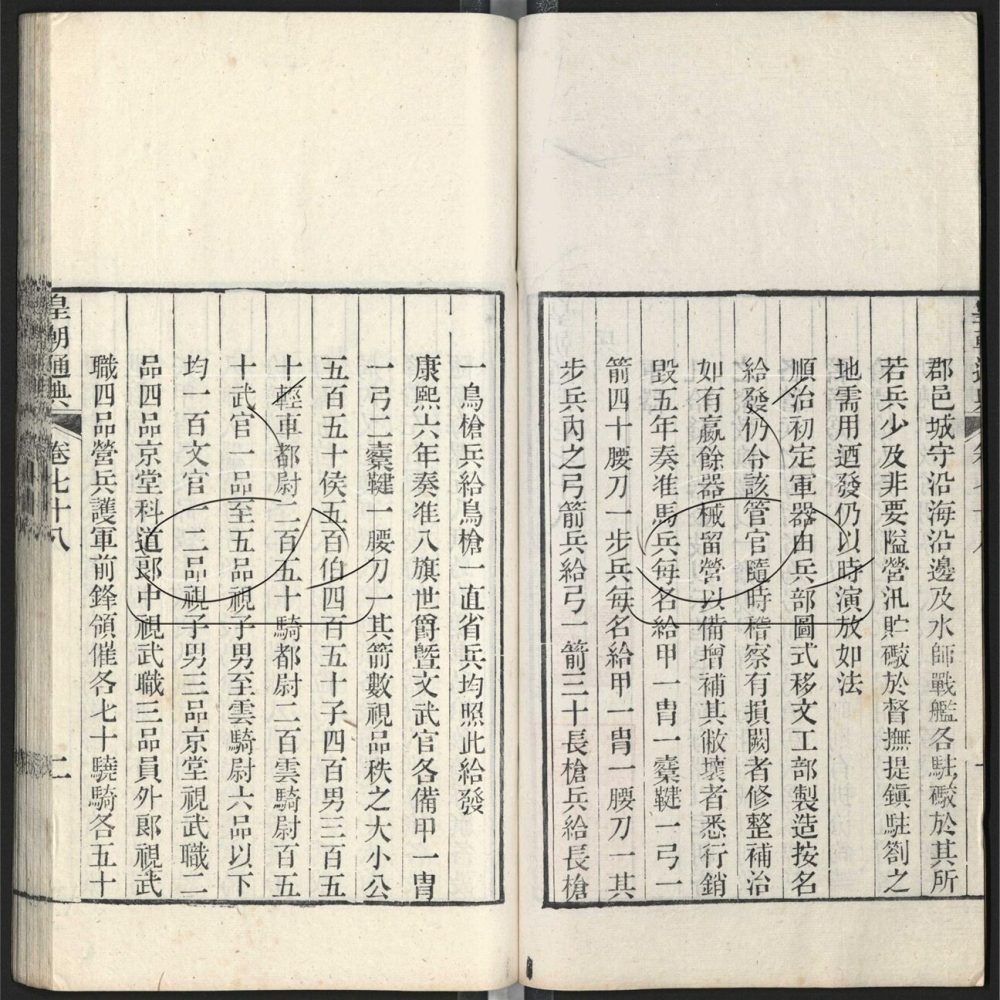 郡邑城守沿海沿邊及水師戰艦各駐礮於其所
若兵少及非要隘營汛貯礮於督撫提鎭駐劄之
地需用迺發仍以時演放如法
順治初定軍器由兵部圖式移文工部製造按名
給發仍令該管官隨時稽察有損闕者修整補治
如有贏餘器械留營以備增補其敝壞者悉行銷
毀五年奏准馬兵每名給甲一胄一櫜鞬一弓一
箭四十腰刀一步兵每名給甲一胄一腰刀一其
步兵內之弓箭兵給弓一箭三十長槍兵給長槍
一鳥槍兵給鳥槍一直省兵均照此給發
康熙六年奏准八旗世爵暨文武官各備甲一胄
一弓二櫜鞬一腰刀一其箭數視品秩之大小公
五百五十侯五百伯四百五十子四百男三百五
十輕車都尉二百五十騎都尉二百雲騎尉百五
十武官一品至五品視子男至雲騎尉六品以下
均一百文官一二品視子男三品京堂視武職二
品四品京堂科道郎中視武職三品員外郎視武
職四品營兵護軍前鋒領催各七十驍騎各五十
皇朝通典 卷七十八 二